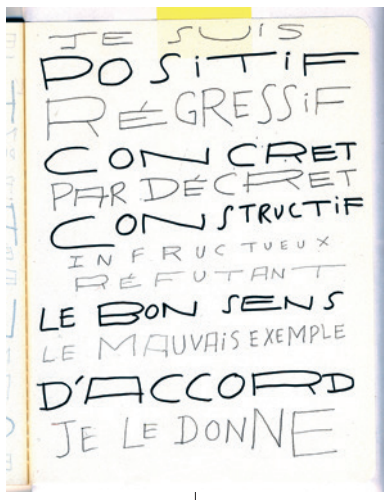 JE SUIS
POSITIF
RÉGRESSIF
CONCRET
PAR DÉCRET
CONSTRUCTIF
INFRUCTUEUX
RÉFUTANT
LE BON SENS
LE MAUVAIS EXEMPLE
D'ACCORD
JE LE DONNE